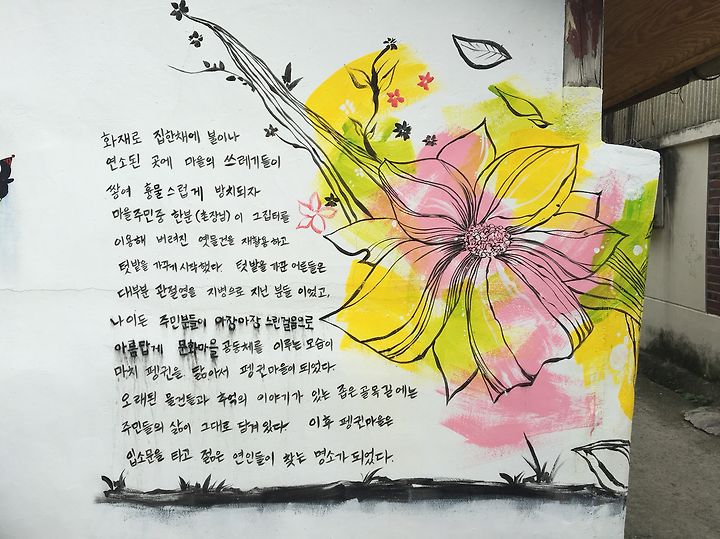 화재로 집한채에 불이나
연소된 곳에 마을의 쓰레기들이
쌓여 흉물스럽게 방치되자
마을주민중 한분(촌장님)이 그집터를
이용해 버려진 옛물건을 재활용하고
텃밭을 가꾸게 시작했다. 텃밭을 가꾼 어른들은
대부분 관절염을 지병으로 지닌 분들 이었고,
나이든 주민분들이 아장아장 느린걸음으로
아름답게 문화마을 공동체를 이루는 모습이
마치 펭귄을 닮아서 펭귄마을이 되었다.
오래된 물건들과 추억의 이야기가 있는 좁은 골목길에는
주민들의 삶이 그대로 담겨있다. 이후 펭귄마을은
입소문을 타고 젊은 연인들이 찾는 명소가 되었다.